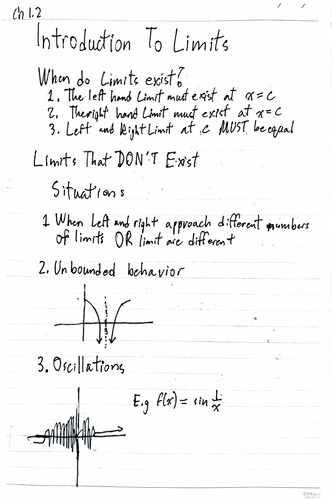 Ch 1.2
Introduction To Limits
When do Limits exist?
1. The left hand Limit must exist at x = c
2. The right hand Limit must exist at x = c
3. Left and Right Limit at c MUST be equal
Limits That DON'T Exist
Situations
1 When Left and right approach different numbers
of limits OR limit are different
2. Unbounded behavior
3. Oscillations
E.g f(x) = sin 1/x